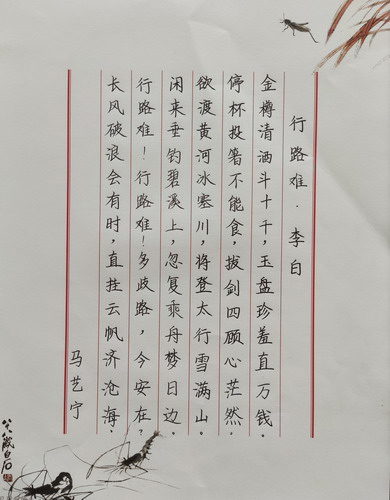 行路难·李白
金樽清酒斗十千，玉盘珍羞直万钱。
停杯投箸不能食，拔剑四顾心茫然。
欲渡黄河冰塞川，将登太行雪满山。
闲来垂钓碧溪上，忽复乘舟梦日边。
行路难！行路难！多歧路，今安在？
长风破浪会有时，直挂云帆济沧海。
马艺宁